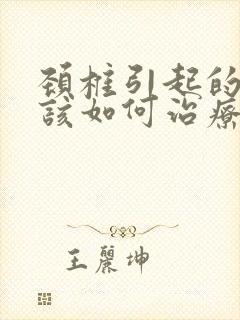 頚椎引起的
該如何治療
王麗坤